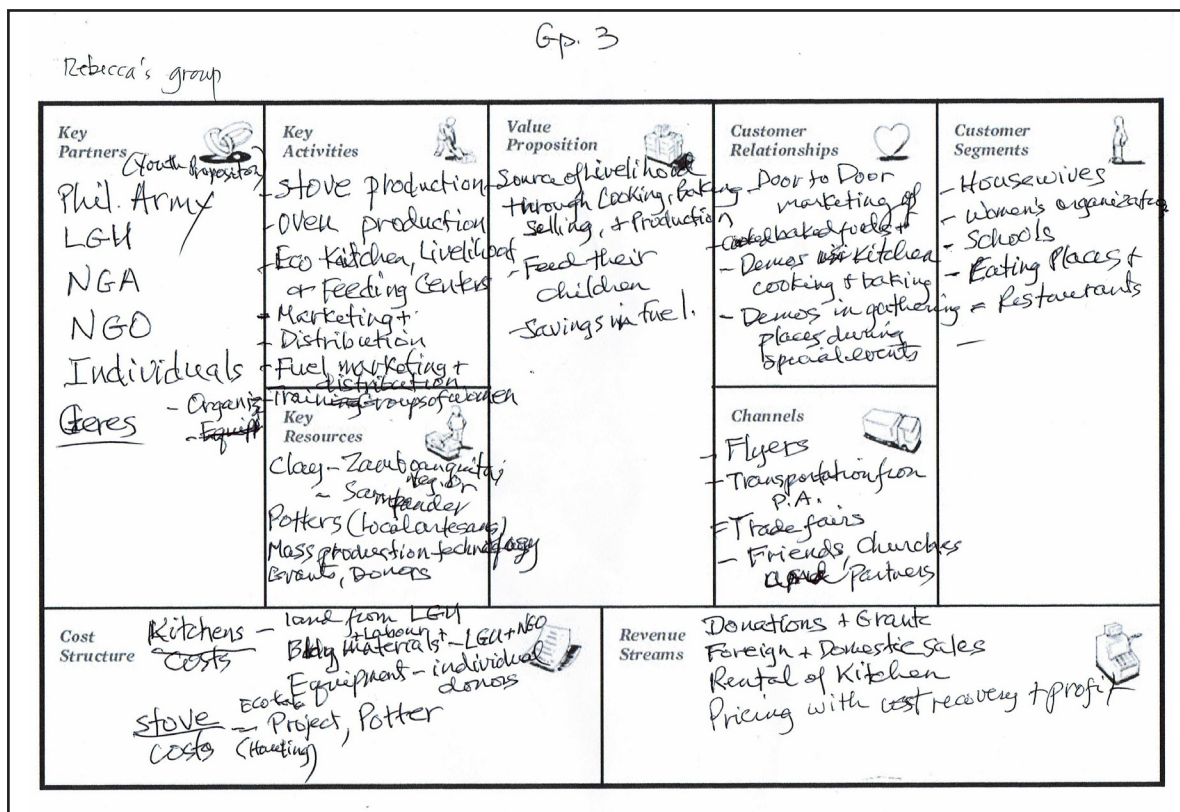 Gp. 3
Rebecca's group
Key
Partners
(Youth
Phil. Army
LGU
NGA
NGO
Individuals
- Organiz
Ceres
Key
Activities
- stove production
- oven production
- Eco Kitchen, Livelihood
or Feeding Centers
- Marketing +
- Distribution
- Fuel marketing +
distribution
- Training Groups of women
Key
Resources
Clay - Zamboanguita,
Neg. Or
~ Santander
Potters (local artesans)
Mass production technology
Grants, Donors
Value
Proposition
- Source of Livelihood
through Cooking, Baking
Selling, + Production
- Feed their
children
- Savings in fuel.
Customer
Relationships
- Door to Door
marketing of
baked foods +
- Demos Kitchen
cooking + baking
- Demos in gathering
places during
special events
Channels
- Flyers
- Transportation from
P.A.
= Trade fairs
- Friends, Churches
Partners
Customer
Segments
- Housewives
- Women's organization
- Schools
- Eating Places +
= Restaurants
-
Cost
Structure
Kitchens - land from LGU
costs
+ Labour +
Bldg materials - LGU + NGO
Equipment - individual
donors
stove = Project, Potter
costs
Revenue
Streams
Donations + Grants
Foreign + Domestic sales
Rental of Kitchen
Pricing with cost recovery + profit